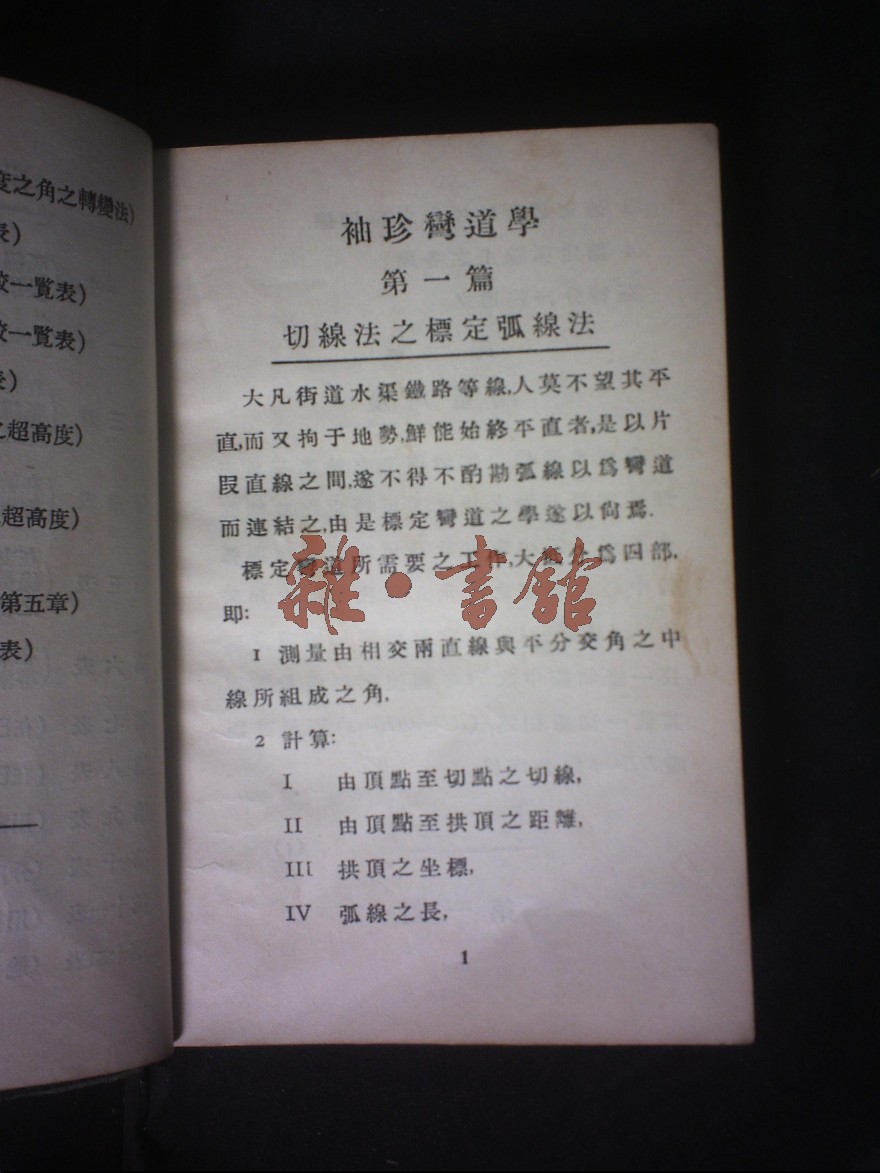 度之角之轉變法)
表)
較一覽表)
較一覽表)
表)
之超高度)
超高度)
第五章)
表)
袖珍彎道學
第一篇
切線法之標定弧線法
大凡街道水渠鐵路等線,人莫不望其平
直,而又拘于地勢,鮮能始終平直者,是以片
段直線之間,遂不得不酌勘弧線以爲彎道
而連結之,由是標定彎道之學遂以尙焉.
標定彎道所需要之工作,大分爲四部,
即:
1 測量由相交兩直線與平分交角之中
線所組成之角,
2 計算:
I 由頂點至切點之切線,
II 由頂點至拱頂之距離,
III 拱頂之坐標,
IV 弧線之長,
1
雜·書館